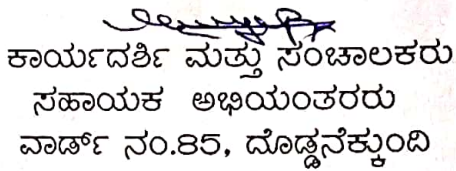 ಕಾರ್ಯದರ್ಶಿ ಮತ್ತು ಸಂಚಾಲಕರು
ಸಹಾಯಕ ಅಭಿಯಂತರರು
ವಾರ್ಡ್ ನಂ.85, ದೊಡ್ಡನೆಕ್ಕುಂದಿ